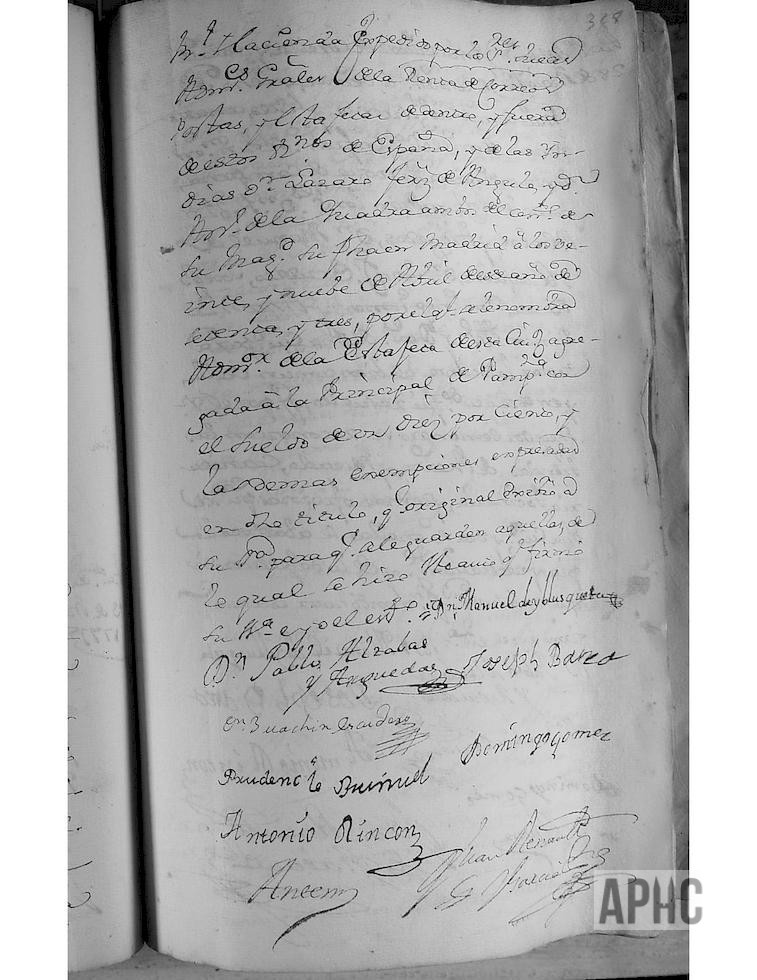 368
Rl. Hacienda Expedido por los Sres. Jueces
Admres. Grales. de la Renta de Correos
Postas, y Estafetas de dentro, y fuera
de estos Rnos. de España, y de las Yn-
dias Dn. Lazaro Frnz. de Angulo, y Dn.
Antº. de la Quadra ambos del Conº. de
su Magd. su fha en Madrid a los ve-
inte, y nueve de Abril de este año de
setenta, y tres, por el qt. se le nombra
Admor. de la Estafeta de esta Ciud. agre-
gada a la Principal de Pampna. con
el sueldo de un diez por Ciento, y
las demas exempciones expresadas
en dho titulo, q. original exivió a
su Sa. para q. se le guarden aquellas, de
lo qual se hizo Reauto y firmó
su Sa. e yo el esno.
Dn. Manuel de
Dn. Pablo Alrabas
y Arguedas Joseph Borza
Juachin Escudero
Domingo gomez
Prudencio Buñuel
Antonio Rincon
Juan Renault
y Garcia
Antemi
APHC